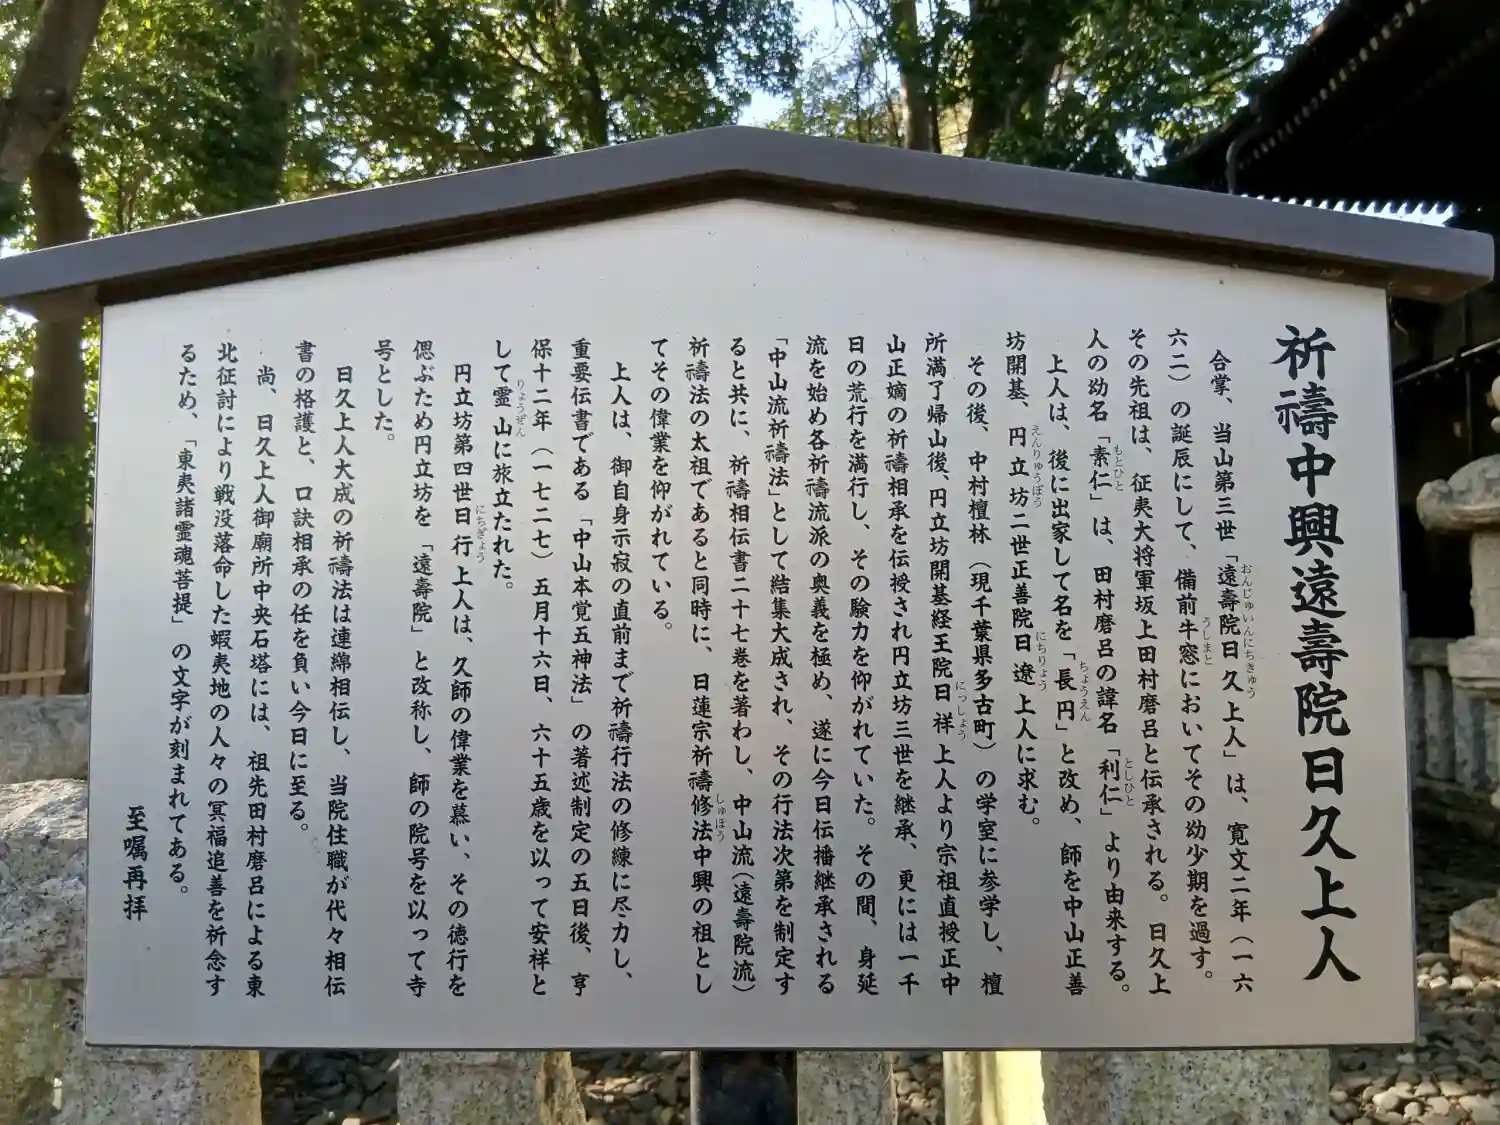 祈禱中興遠壽院日久上人
合掌、当山第三世「遠壽院日久上人」は、寛文二年（一六
おんじゅいんにちきゅう
六二）の誕辰にして、備前牛窓においてその幼少期を過す。
うしまと
その先祖は、征夷大将軍坂上田村磨呂と伝承される。日久上
人の幼名「素仁」は、田村磨呂の諱名「利仁」より由来する。
もとひと
としひと
上人は、後に出家して名を「長円」と改め、師を中山正善
ちょうえん
坊開基、円立坊二世正善院日遼上人に求む。
えんりゅうぼう
にちりょう
その後、中村檀林（現千葉県多古町）の学室に参学し、檀
所満了帰山後、円立坊開基経王院日祥上人より宗祖直授正中
にっしょう
山正嫡の祈禱相承を伝授され円立坊三世を継承、更には一千
日の荒行を満行し、その験力を仰がれていた。その間、身延
流を始め各祈禱流派の奥義を極め、遂に今日伝播継承される
「中山流祈禱法」として結集大成され、その行法次第を制定す
ると共に、祈禱相伝書二十七巻を著わし、中山流（遠壽院流）
祈禱法の太祖であると同時に、日蓮宗祈禱修法中興の祖とし
しゅほう
てその偉業を仰がれている。
上人は、御自身示寂の直前まで祈禱行法の修練に尽力し、
重要伝書である「中山本覚五神法」の著述制定の五日後、亨
保十二年（一七二七）五月十六日、六十五歳を以って安祥と
して霊山に旅立たれた。
りょうぜん
円立坊第四世日行上人は、久師の偉業を慕い、その徳行を
にちぎょう
偲ぶため円立坊を「遠壽院」と改称し、師の院号を以って寺
号とした。
日久上人大成の祈禱法は連綿相伝し、当院住職が代々相伝
書の格護と、口訣相承の任を負い今日に至る。
尚、日久上人御廟所中央石塔には、祖先田村磨呂による東
北征討により戦没落命した蝦夷地の人々の冥福追善を祈念す
るため、「東夷諸霊魂菩提」の文字が刻まれてある。
至嘱再拝